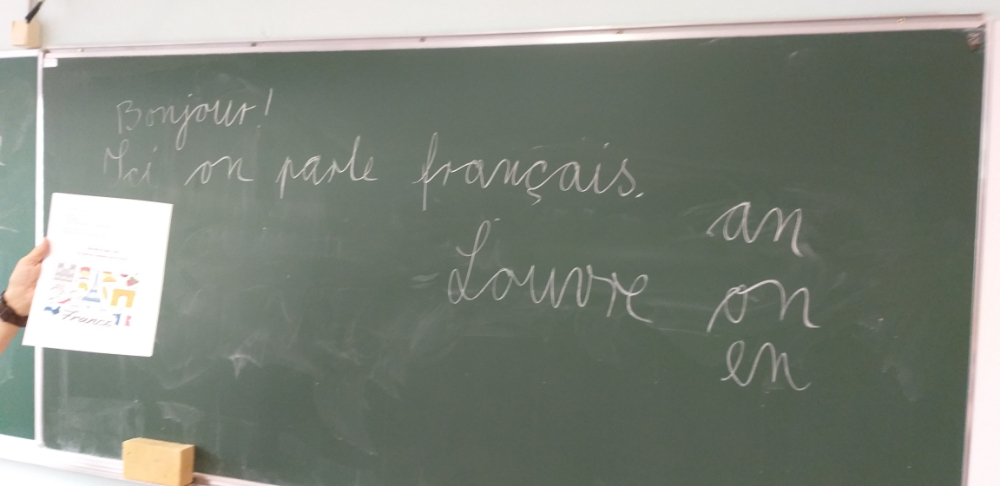 Bonjour!
Ici on parle français.
Louvre
an
on
en
France